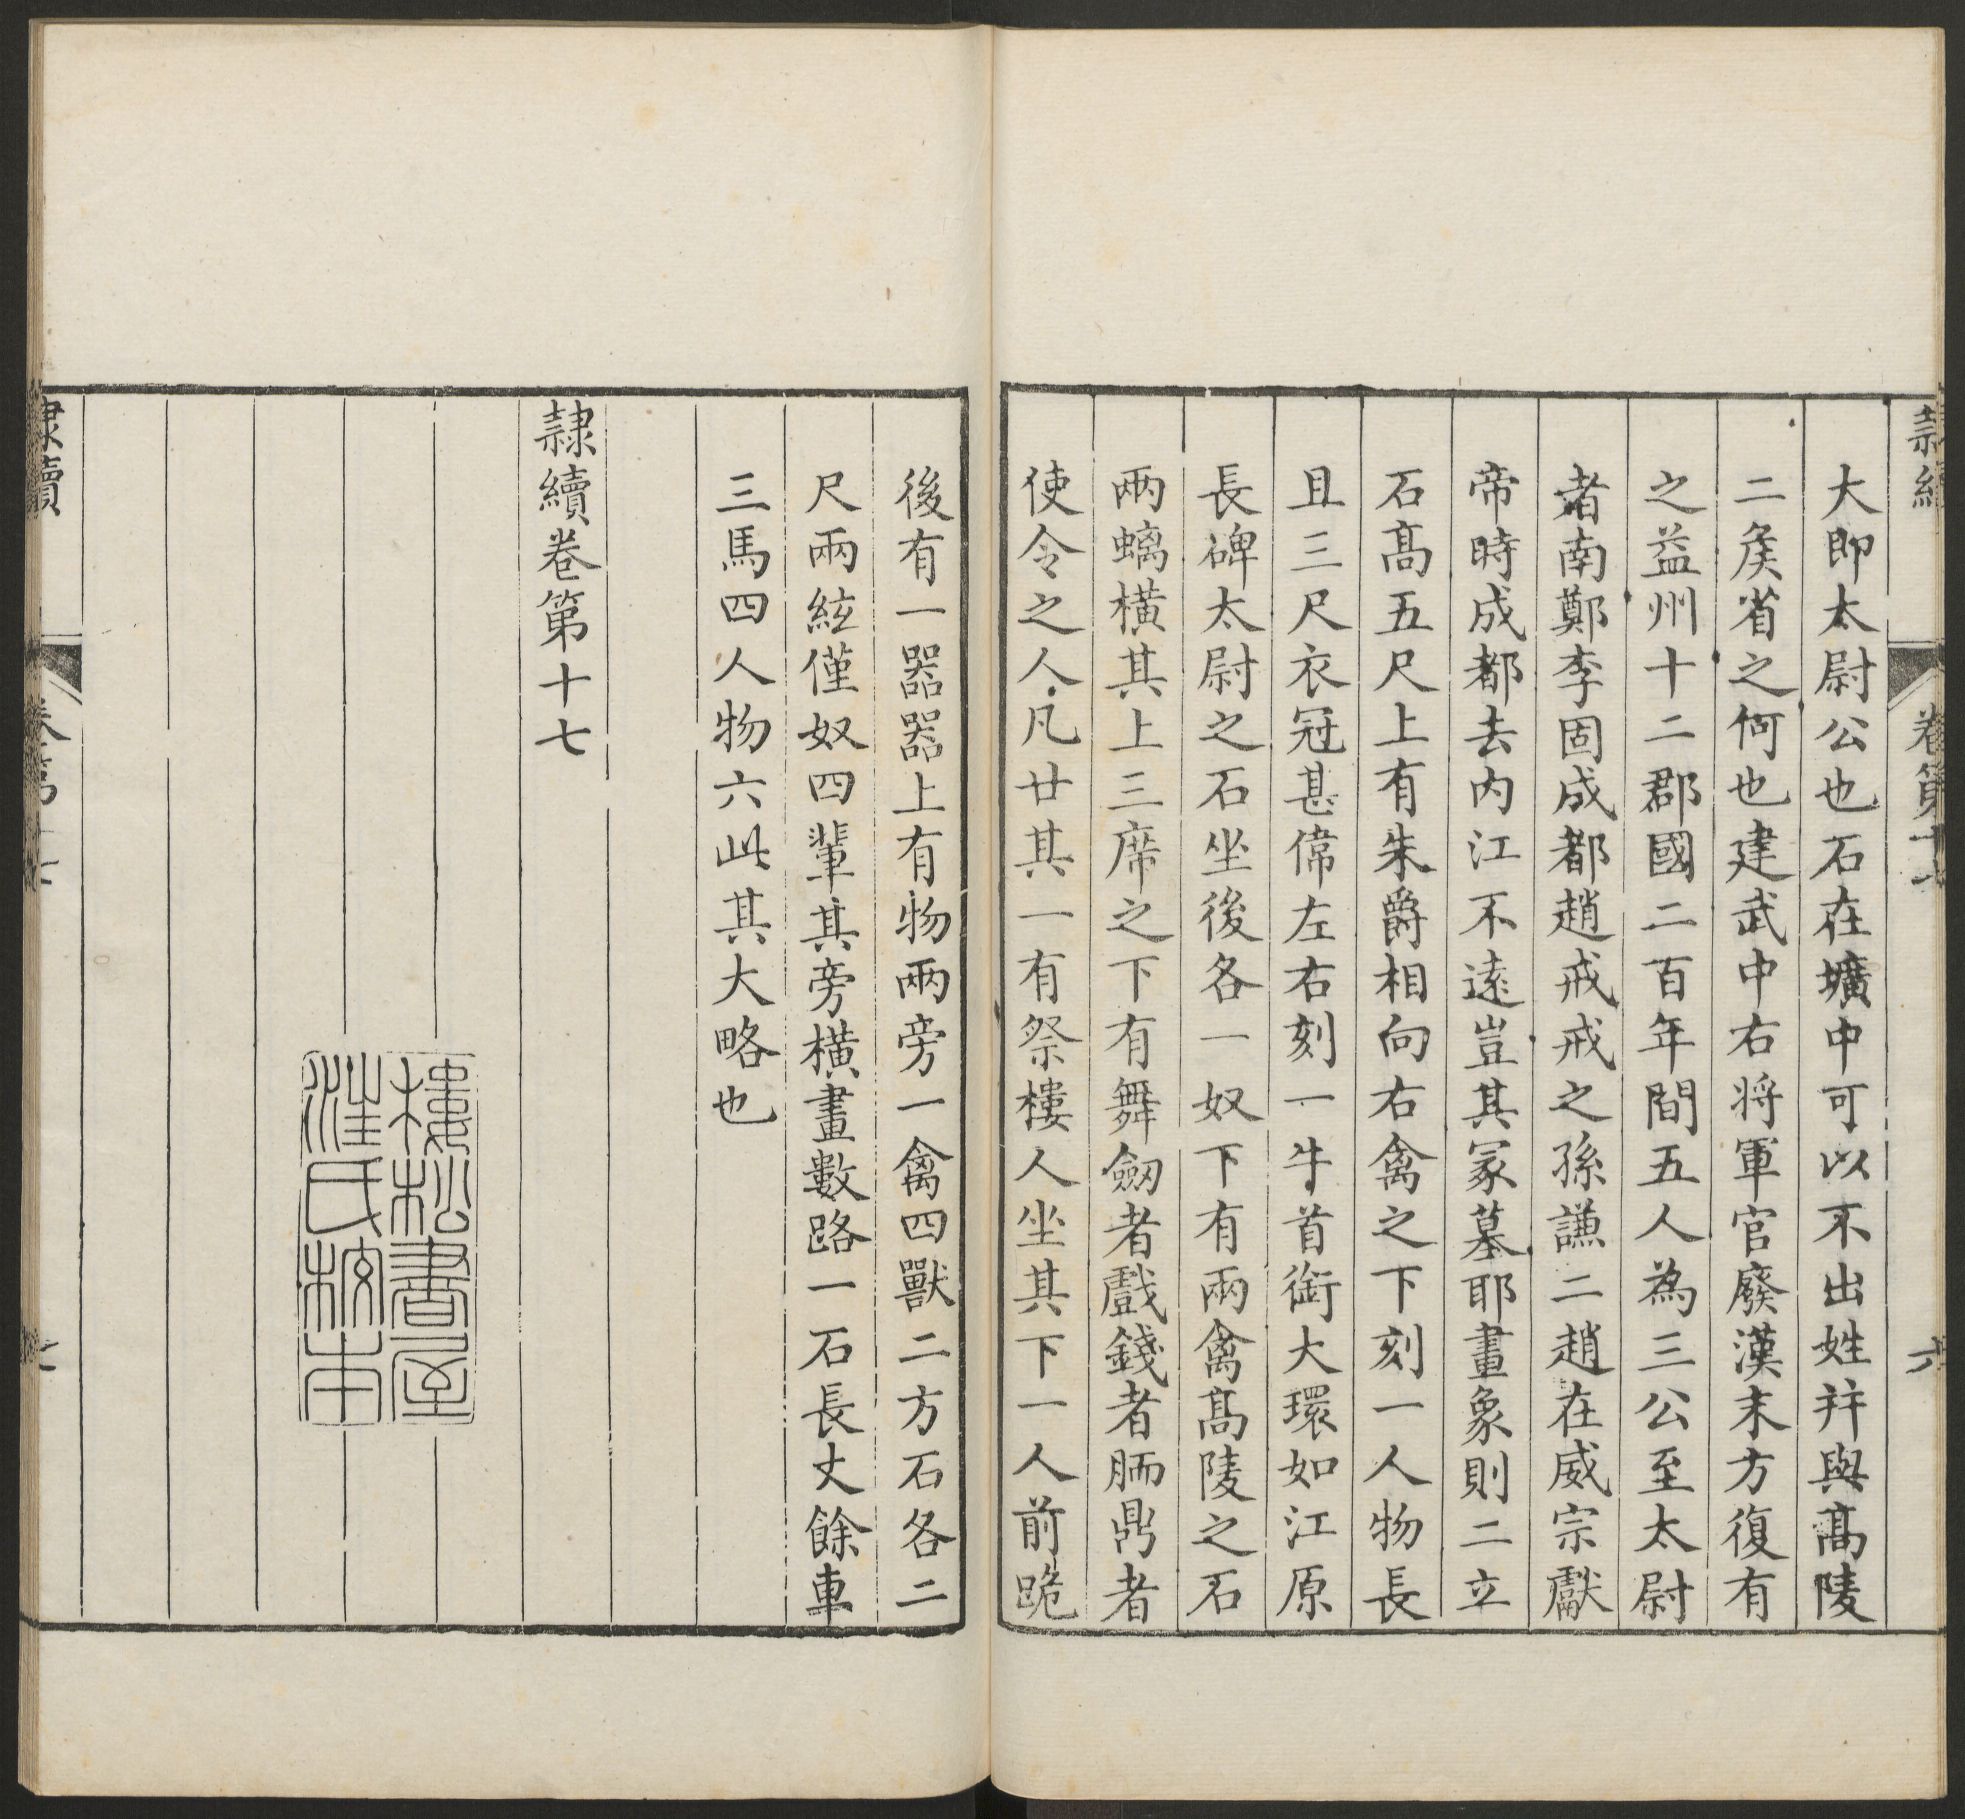 隸續 卷第十七 六
大即太尉公也石在壙中可以不出姓并與髙陵
二矦省之何也建武中右將軍官廢漢末方復有
之益州十二郡國二百年間五人為三公至太尉
者南鄭李固成都趙戒戒之孫謙二趙在威宗獻
帝時成都去内江不遠豈其冢墓耶畫象則二立
石髙五尺上有朱爵相向右禽之下刻一人物長
且三尺衣冠甚偉左右刻一牛首銜大環如江原
長碑太尉之石坐後各一奴下有兩禽髙陵之石
兩螭橫其上三席之下有舞劒者戲錢者胹鼎者
使令之人凡廿其一有祭樓人坐其下一人前跪
後有一器器上有物兩旁一禽四獸二方石各二
尺兩絃僅奴四輩其旁橫畫數路一石長丈餘車
三馬四人物六此其大略也
隸續卷第十七
樓松書屋
汪氏校本
隸續 卷第十七 七